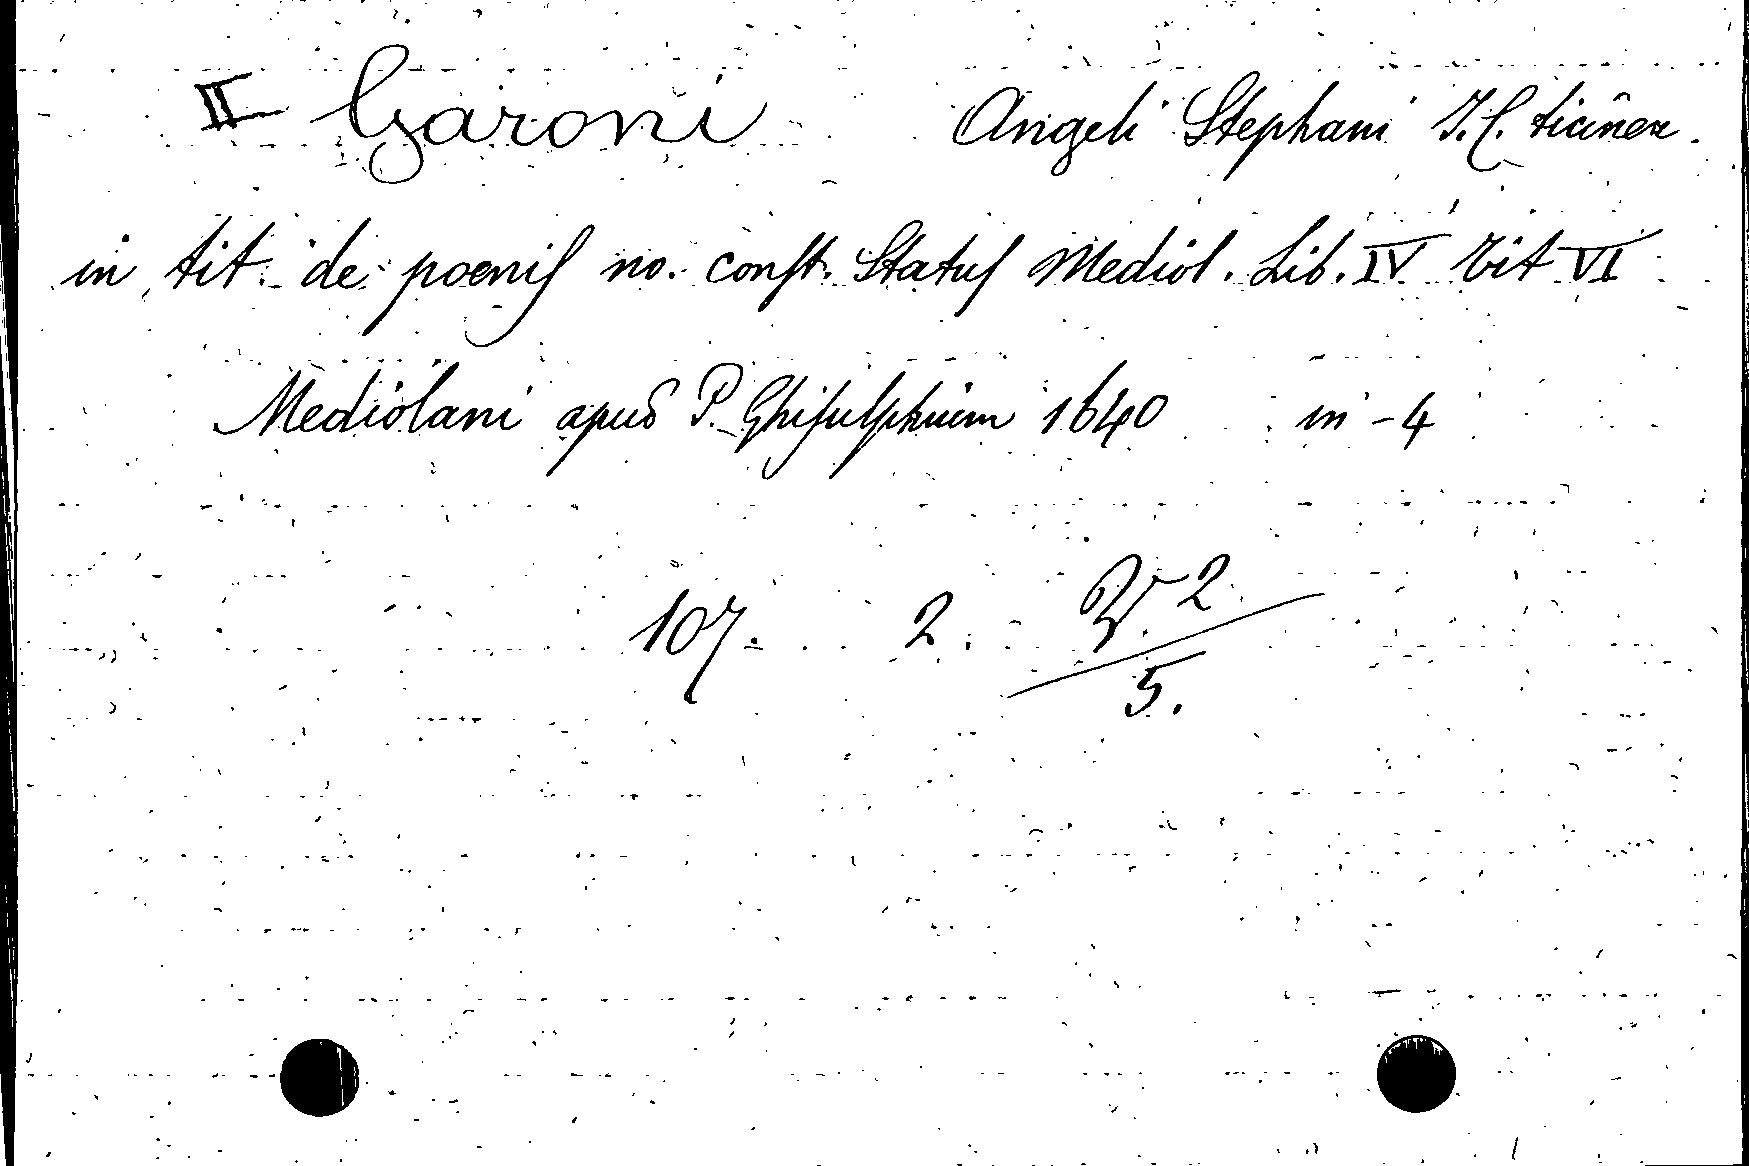 II Garoni Angeli Stephani J.C. ticinen
in tit. de poenis no. const. Status Mediol. Lib. IV tit VI
Mediolani apud P. Ghisulphium 1640 in-4
107. 2. 2
5.